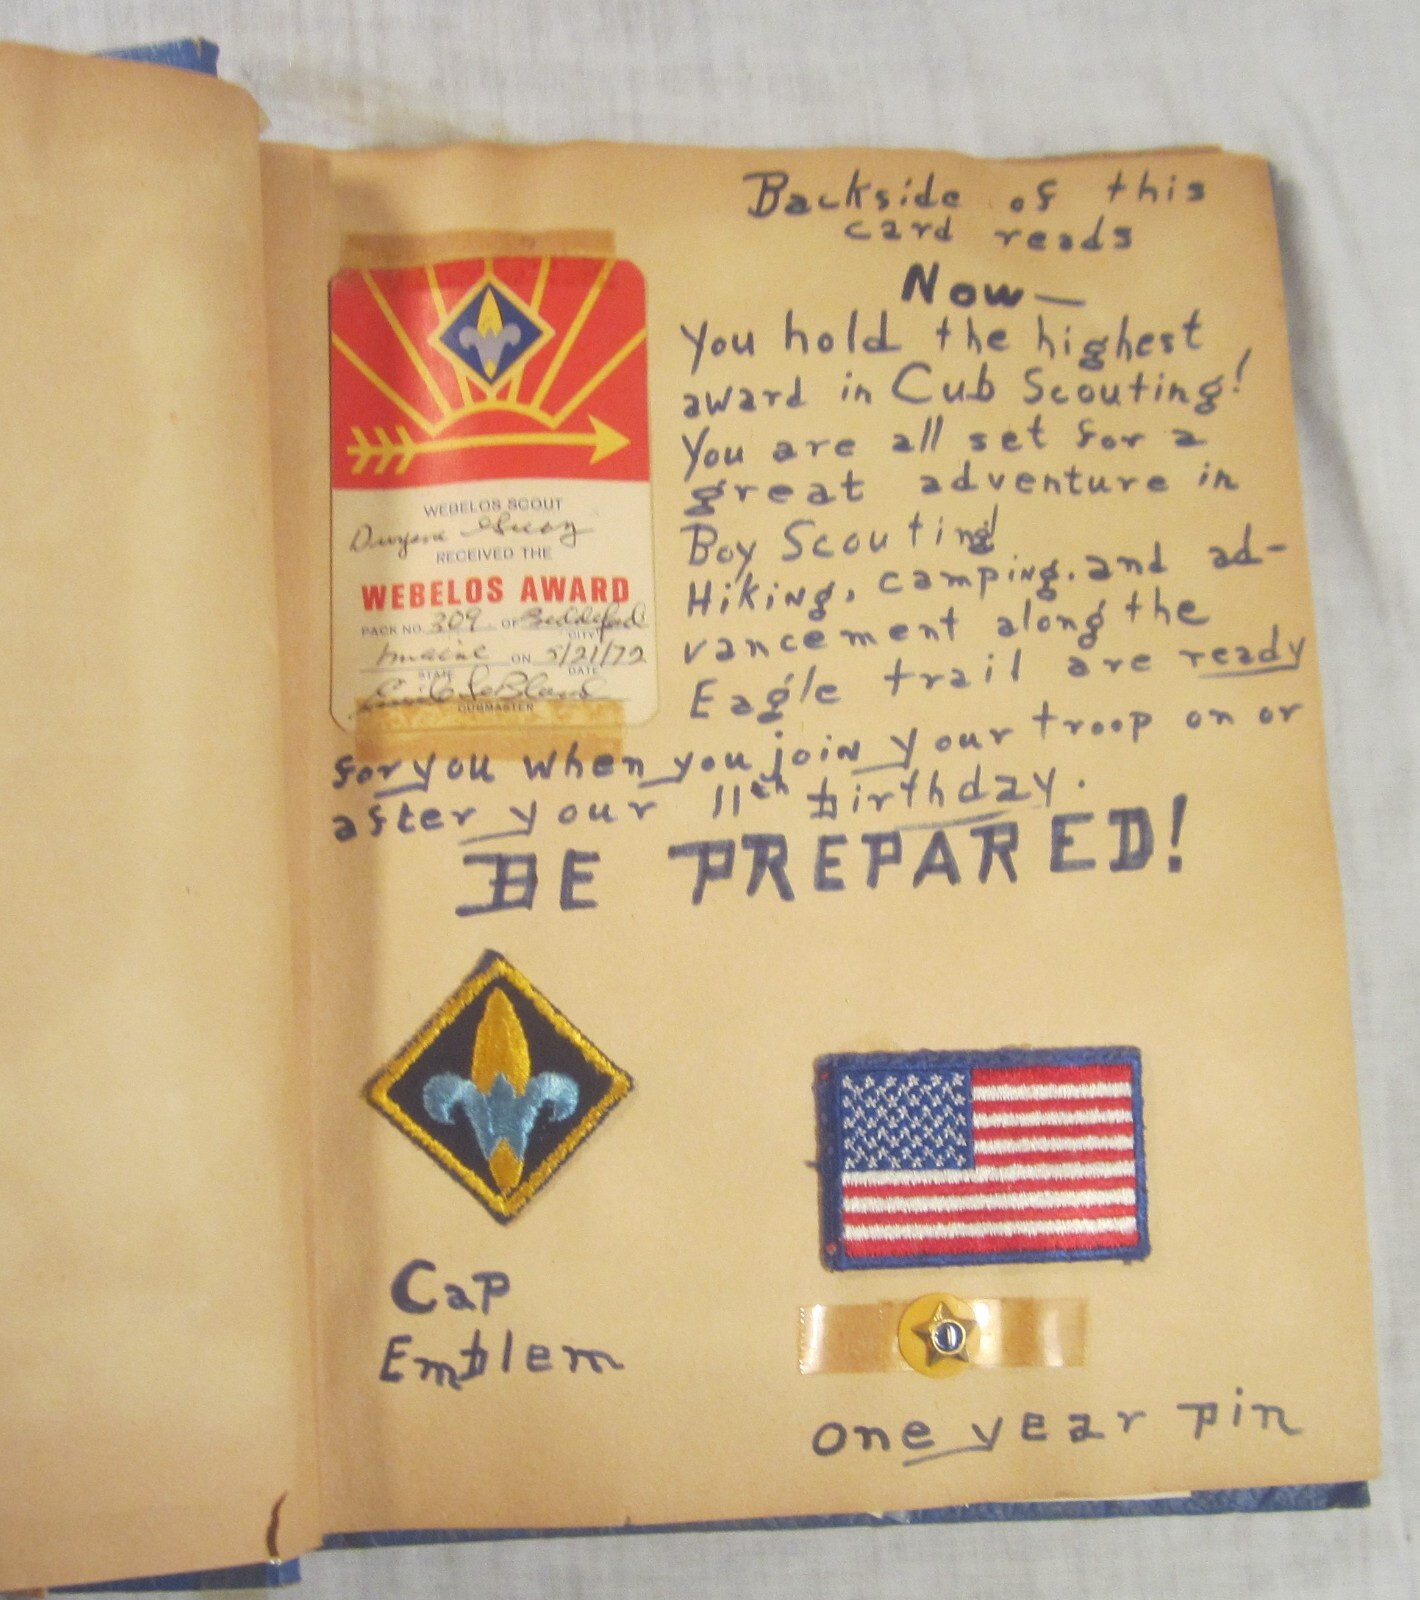 Backside of this
card reads
Now—
You hold the highest
award in Cub Scouting!
You are all set for a
great adventure in
Boy Scouting!
Hiking, camping, and ad-
vancement along the
Eagle trail are ready
for you when you join your troop on or
after your 11th birthday.
BE PREPARED!
WEBELOS SCOUT
Dwayne
RECEIVED THE
WEBELOS AWARD
PACK NO. 309 OF Biddeford
CITY
Maine ON 5/21/72
STATE DATE
LeBlanc
CUBMASTER
Cap
Emblem
1
one year pin